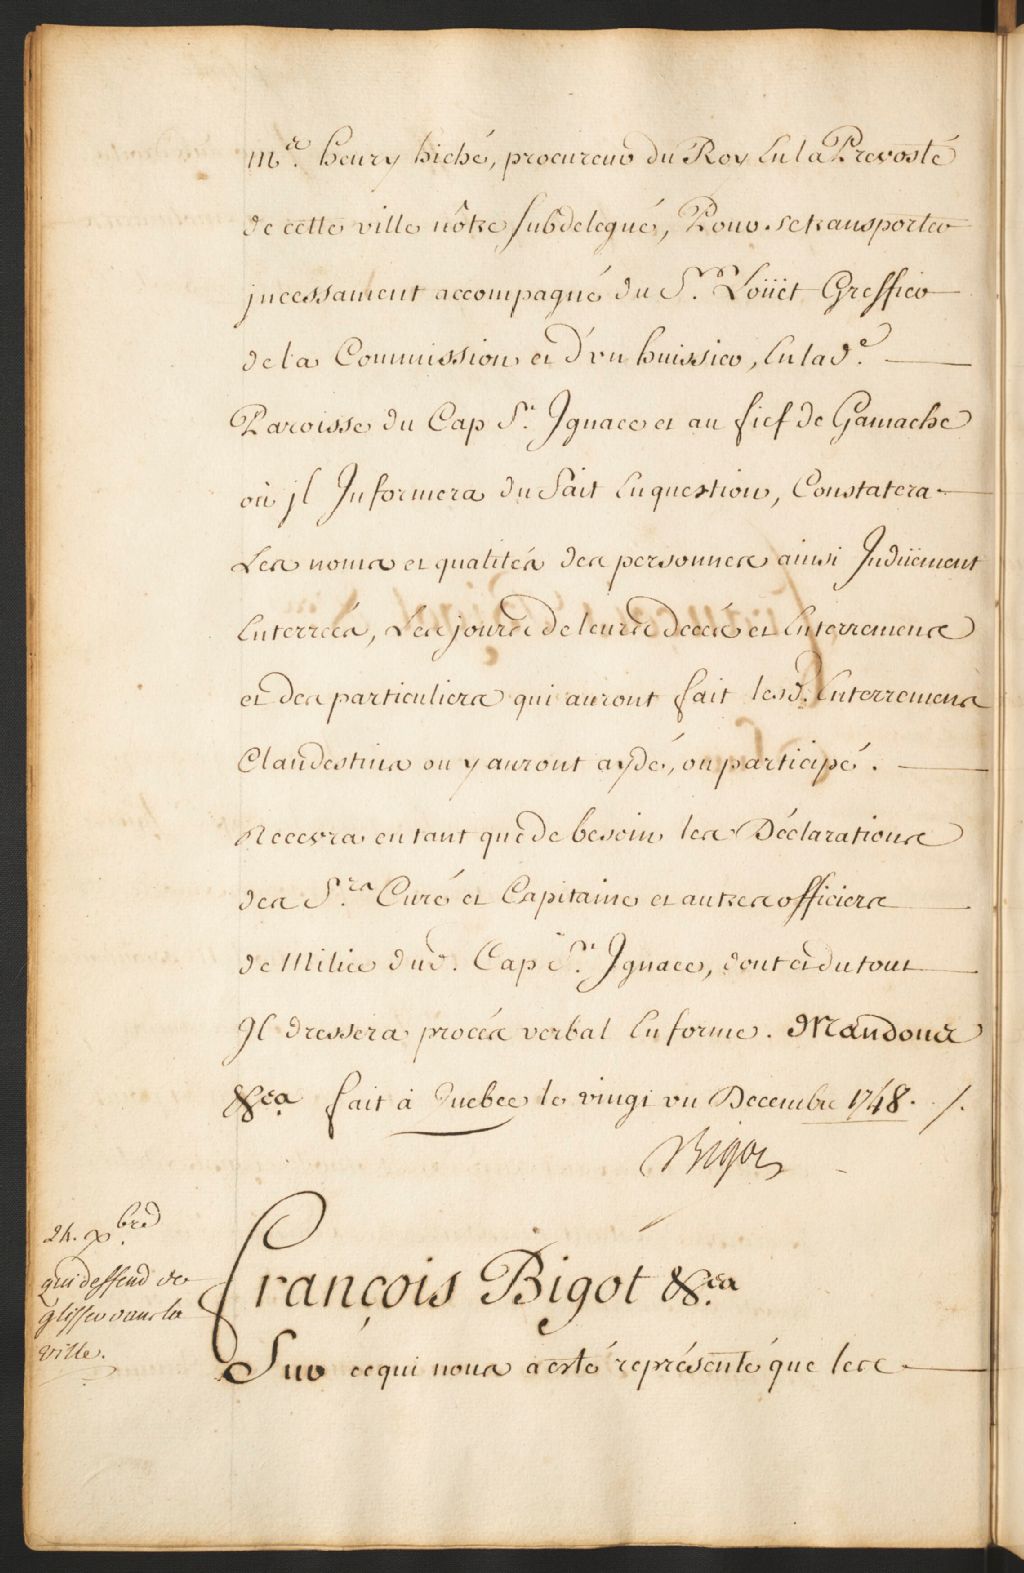 Mr. henry hiché, procureur du Roy En la Prevosté
de cette ville nôtre subdelegué, Pour se transporter
jncessament accompagné du Sr. Loüet Greffier
de la Commission et d'vn huissier, En lad.e
Paroisse du Cap St. Jgnace et au fief de Gamache
où jl Jnformera du fait En question, Constatera
Les noms et qualités des personnes ainsi Jndüement
Enterrées, Les jours de leurs decés et Enterremens
et des particuliers qui auront fait lesd. Enterremens
Clandestins ou y auront aydé, ou participé.
Recevra en tant que de besoin les Déclarations
des Srs. Curé et Capitaine et autres officiers
de Milice dud. Cap St. Jgnace, dont et du tout
Jl dressera procés verbal En forme. Mandons
&ca. fait à Quebec le vingt vn Decembre 1748. /.
Bigot
24. xbre.
qui deffend de
glisser dans la
ville.
François Bigot &ca.
Sur ce qui nous a esté représenté que les